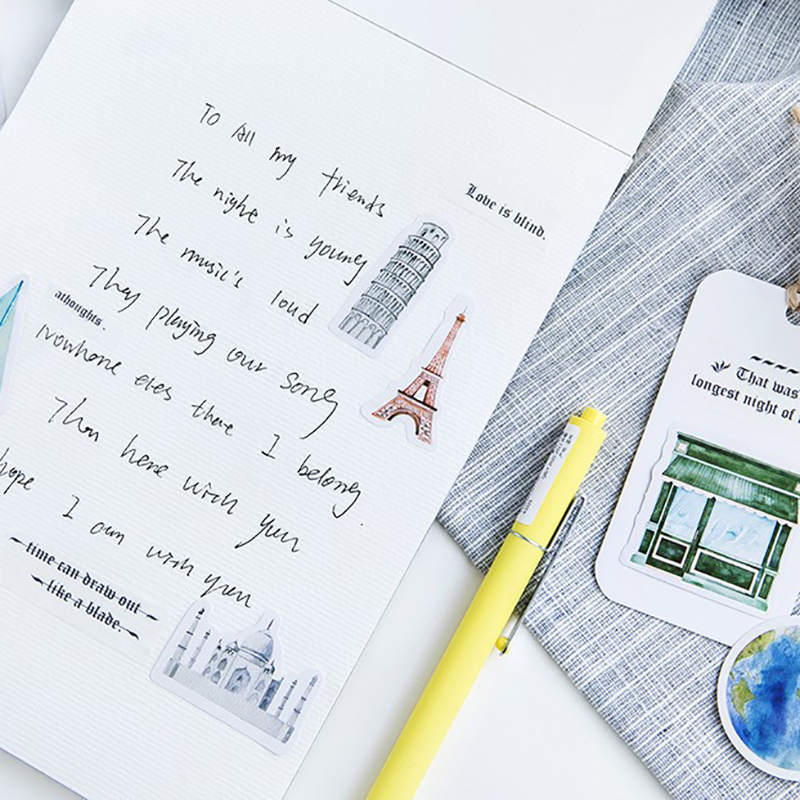 To All my friends
The night is young
The music's loud
They playing our song
Nowhone eles there I belong
Than here with yun
hope I am with yun
Love is blind.
athoughts.
time can draw out
like a blade.
That was
longest night of